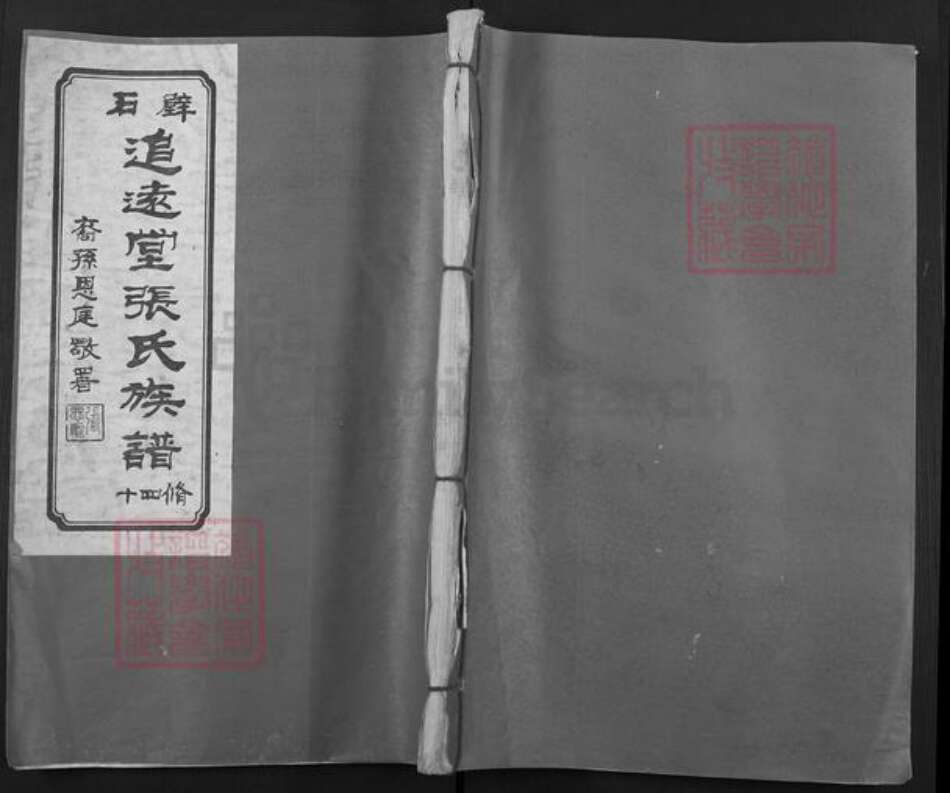 石壁
追遠堂張氏族譜
十四脩
裔孫恩庭敬署